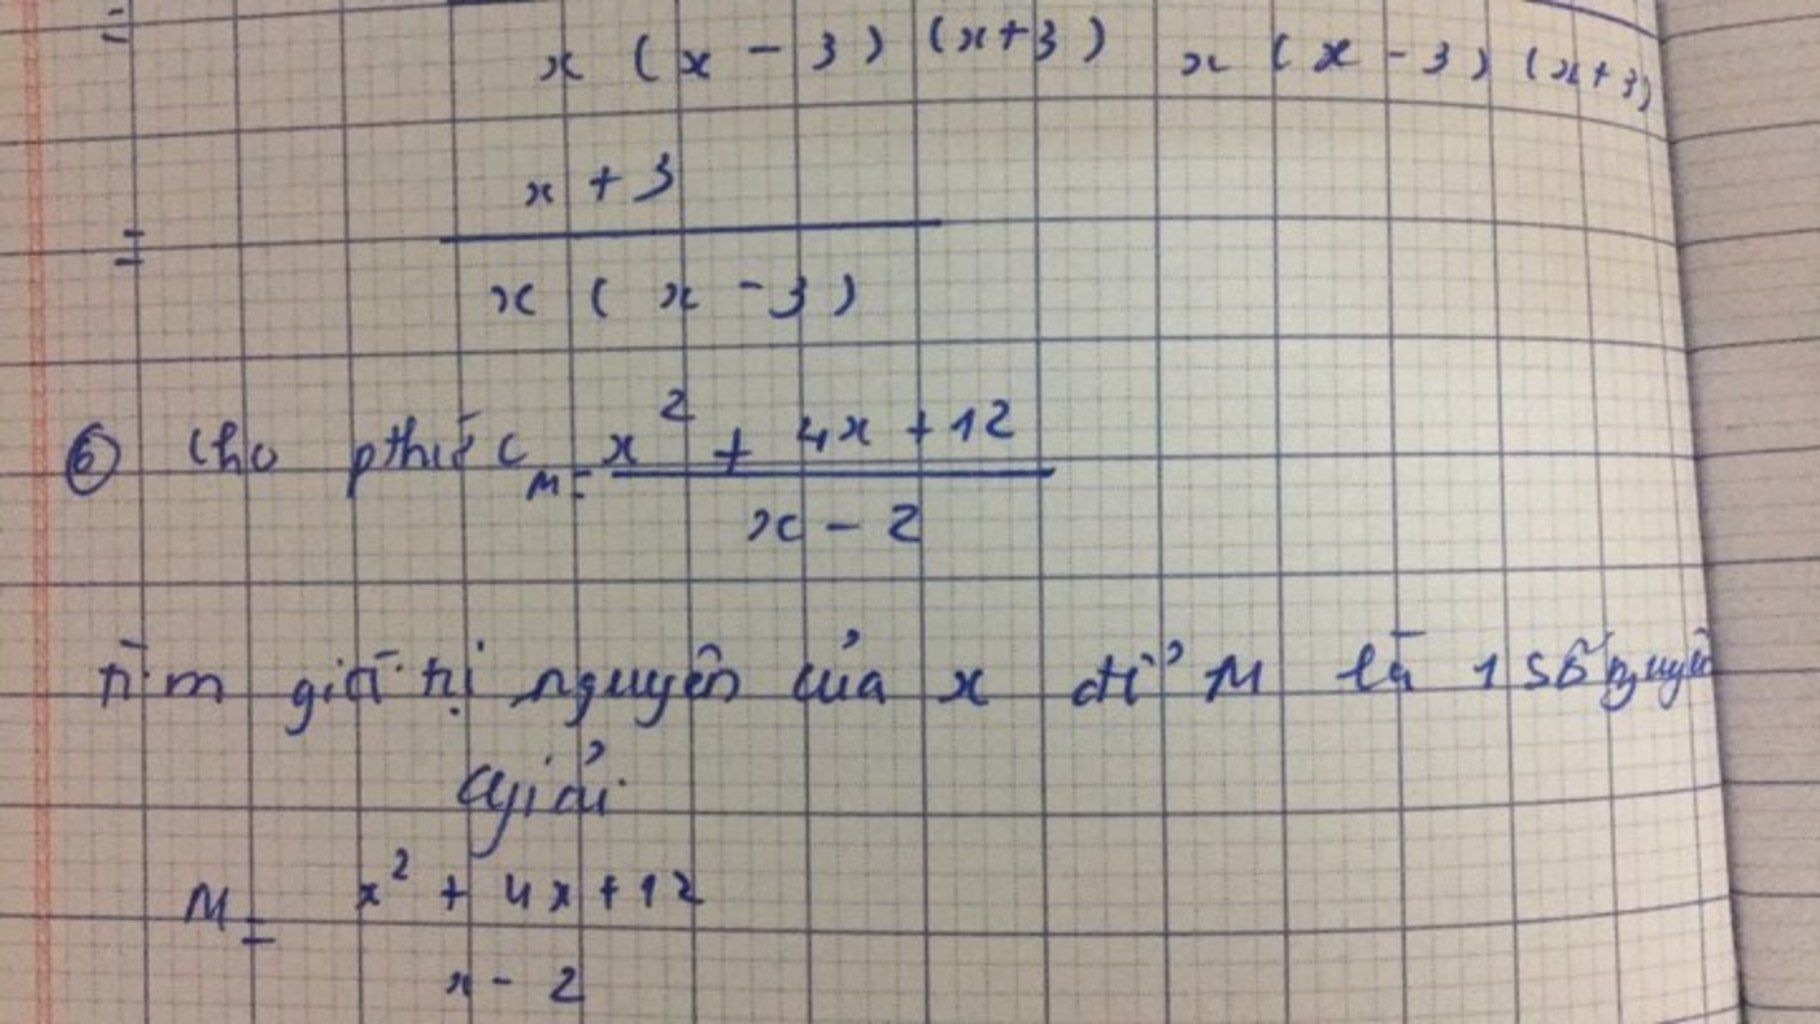 =
x (x - 3) (x+3) x (x - 3) (x+3)
x + 3
=
x ( x - 3 )
⑥ Cho phức M = x² + 4x + 12
x - 2
Tìm giá trị nguyên của x để M là 1 số nguyên
Giải
x² + 4x + 12
M =
x - 2